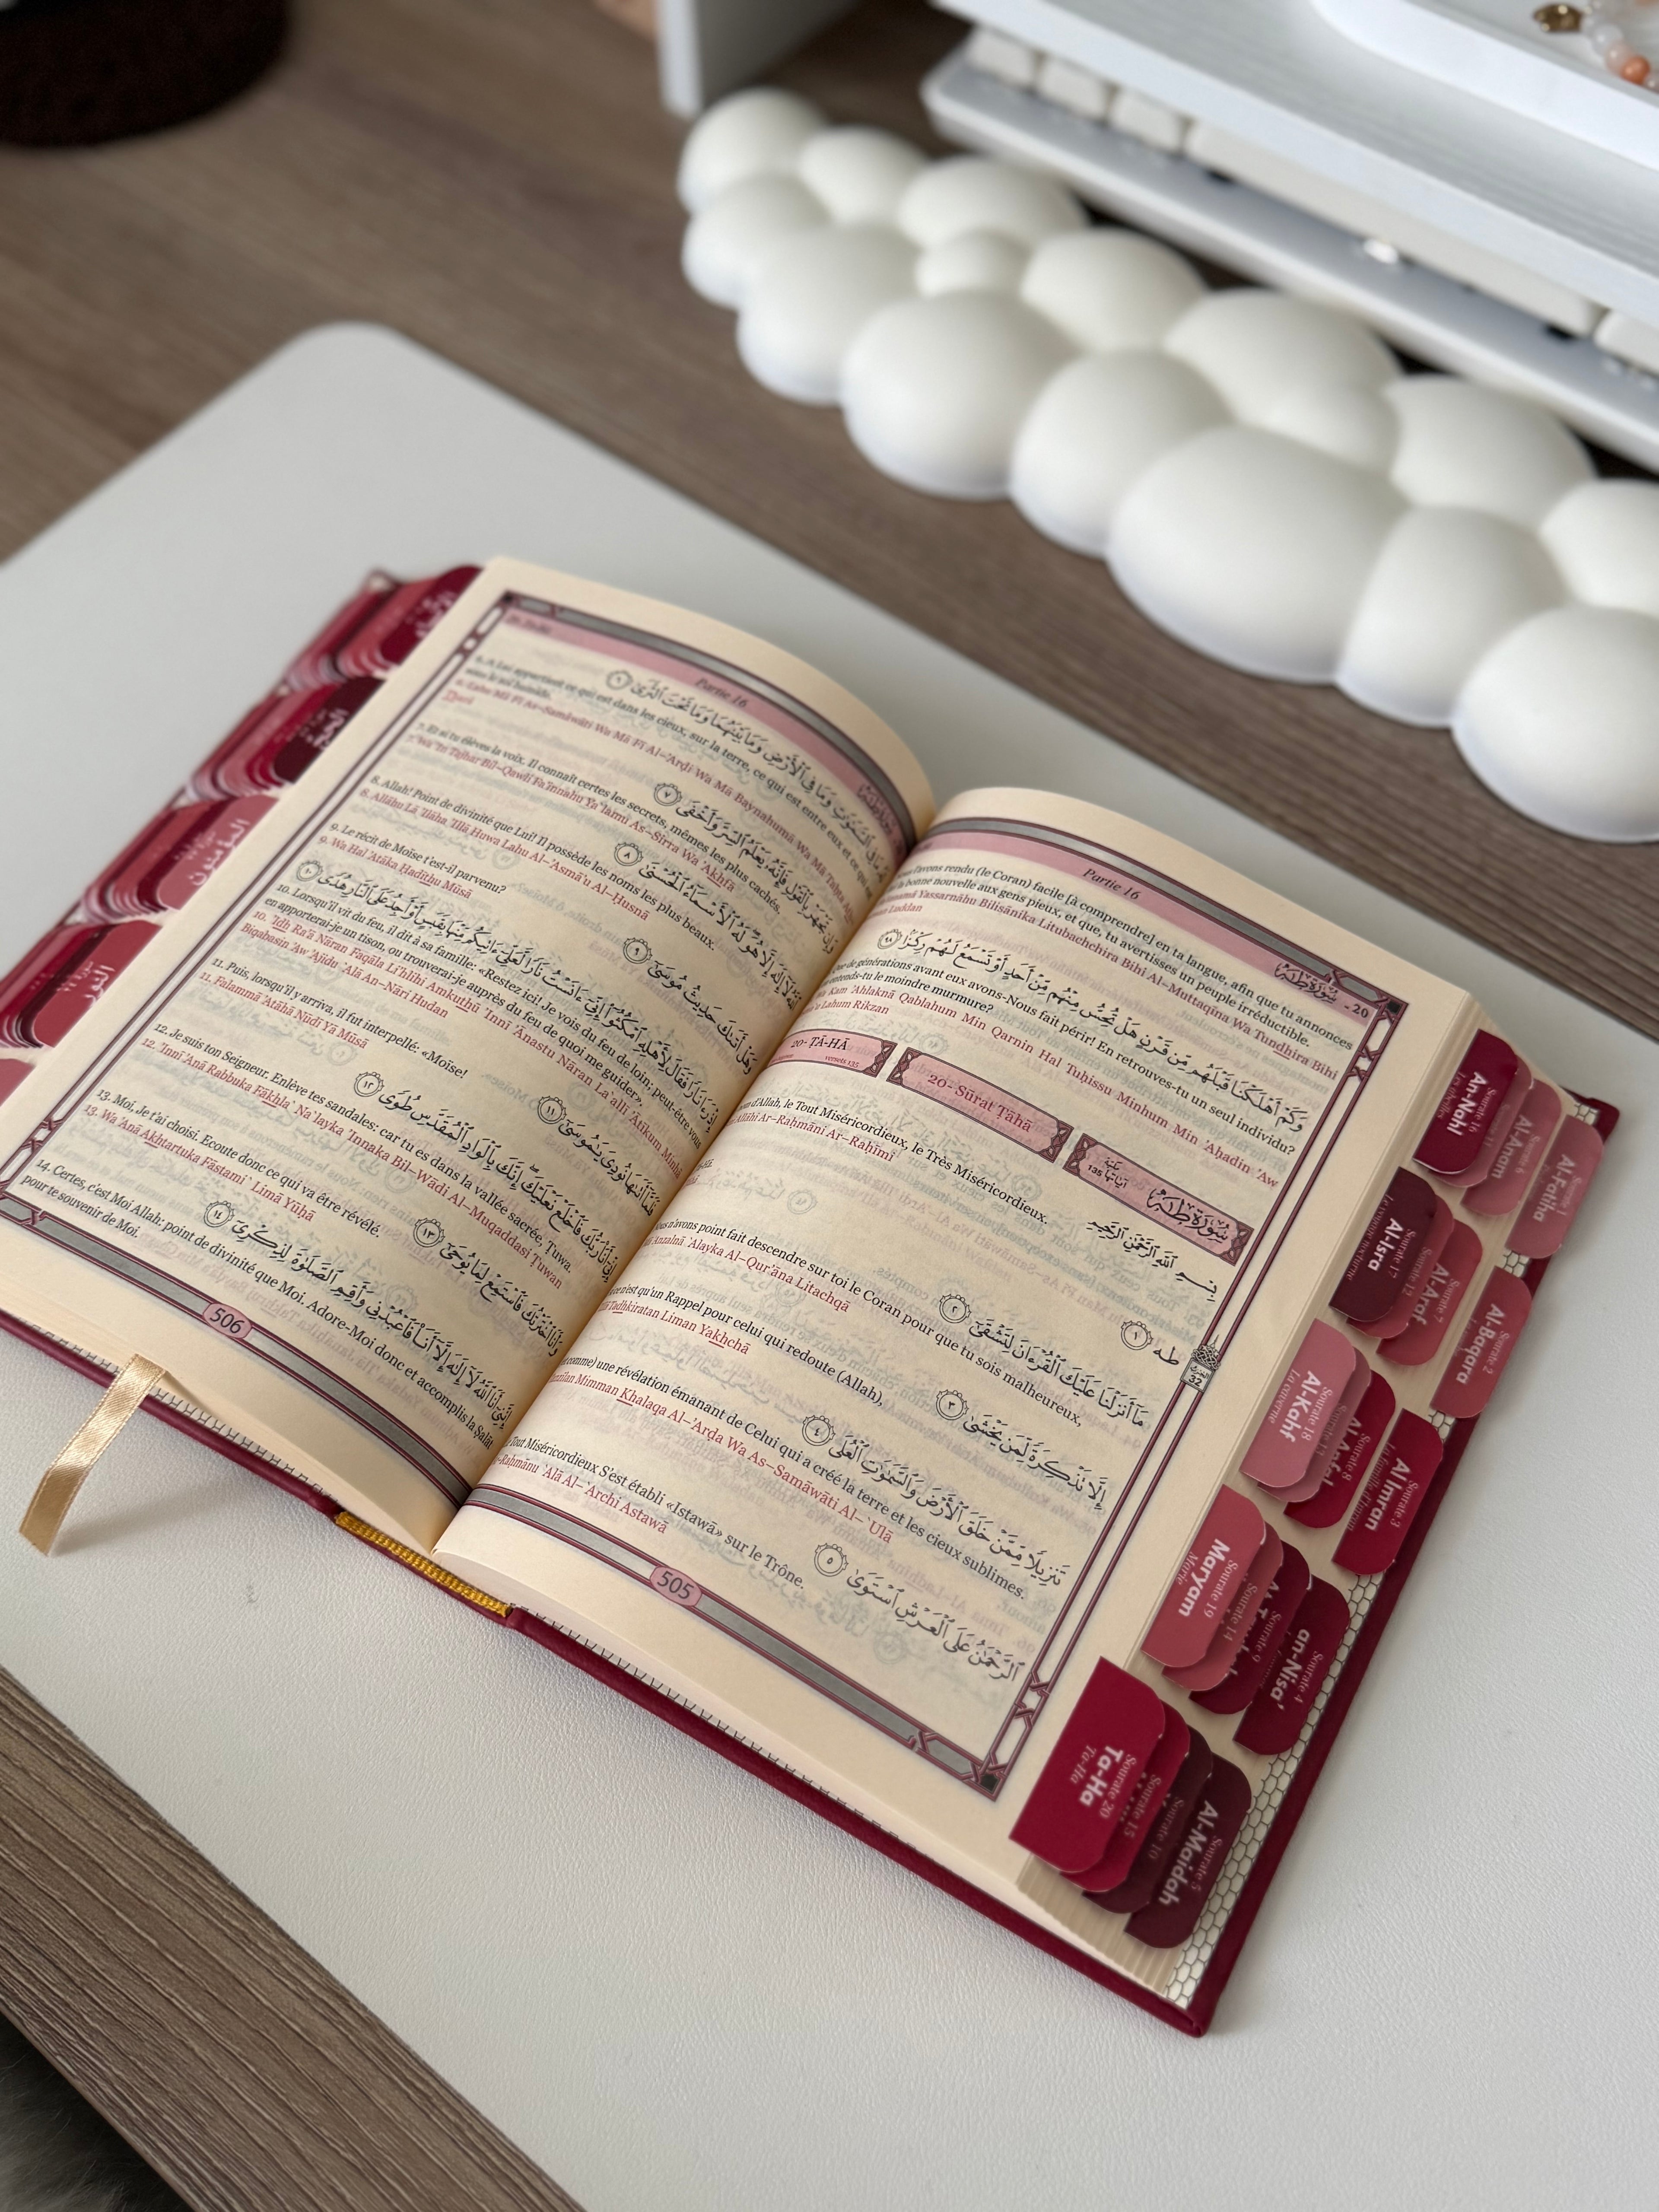 Partie 16
سُورَةُ طه - 20
avons rendu (le Coran) facile [à comprendre] en ta langue, afin que tu annonces
bonne nouvelle aux gens pieux, et que, tu avertisses un peuple irréductible.
Yassarnāhu Bilisānika Litubachchira Bihi Al-Muttaqīna Wa Tundhira Bihi
Luddan
وَكَمْ أَهْلَكْنَا قَبْلَهُم مِّن قَرْنٍ هَلْ تُحِسُّ مِنْهُم مِّنْ أَحَدٍ أَوْ تَسْمَعُ لَهُمْ رِكْزًا ٩٨
de générations avant eux avons-Nous fait périr! En retrouves-tu un seul individu?
entends-tu le moindre murmure?
Kam 'Ahlaknā Qablahum Min Qarnin Hal Tuḥissu Minhum Min 'Aḥadin 'Aw
Lahum Rikzan
20- ṬĀ-HĀ
versets 135
20- Sūrat Ṭāhā
مَكِّيَّة
آيَاتُهَا 135
سُورَةُ طه
بِسْمِ اللَّهِ الرَّحْمَٰنِ الرَّحِيمِ
d'Allah, le Tout Miséricordieux, le Très Miséricordieux.
Ar-Raḥmāni Ar-Raḥīmi
طه ١
مَا أَنزَلْنَا عَلَيْكَ الْقُرْءَانَ لِتَشْقَىٰ ٢
n'avons point fait descendre sur toi le Coran pour que tu sois malheureux,
Anzalnā 'Alayka Al-Qur'āna Litachqá
إِلَّا تَذْكِرَةً لِّمَن يَخْشَىٰ ٣
n'est qu'un Rappel pour celui qui redoute (Allah),
Tadhkiratan Liman Yakhchá
تَنزِيلًا مِّمَّنْ خَلَقَ الْأَرْضَ وَالسَّمَٰوَٰتِ الْعُلَى ٤
comme) une révélation émanant de Celui qui a créé la terre et les cieux sublimes.
Mimman Khalaqa Al-'Arḍa Wa As-Samāwāti Al-'Ulá
الرَّحْمَٰنُ عَلَى الْعَرْشِ اسْتَوَىٰ ٥
Tout Miséricordieux S'est établi «Istawā» sur le Trône.
'Alá Al-'Archi Astawá
505
Partie 16
لَهُ مَا فِي السَّمَٰوَٰتِ وَمَا فِي الْأَرْضِ وَمَا بَيْنَهُمَا وَمَا تَحْتَ الثَّرَىٰ ٦
6. A Lui appartient ce qui est dans les cieux, sur la terre, ce qui est entre eux et ce qui
sous le sol humide.
6. Lahu Mā Fī As-Samāwāti Wa Mā Fī Al-'Arḍi Wa Mā Baynahumā Wa Mā Taḥta
Thará
وَإِن تَجْهَرْ بِالْقَوْلِ فَإِنَّهُ يَعْلَمُ السِّرَّ وَأَخْفَى ٧
7. Et si tu élèves la voix, Il connaît certes les secrets, mêmes les plus cachés.
7. Wa 'In Tajhar Bil-Qawli Fa'innahu Ya'lamu As-Sirra Wa 'Akhfá
اللَّهُ لَا إِلَٰهَ إِلَّا هُوَ لَهُ الْأَسْمَاءُ الْحُسْنَىٰ ٨
8. Allah! Point de divinité que Lui! Il possède les noms les plus beaux.
8. Allāhu Lā 'Ilāha 'Illā Huwa Lahu Al-'Asmā'u Al-Ḥusná
وَهَلْ أَتَىٰكَ حَدِيثُ مُوسَىٰ ٩
9. Le récit de Moïse t'est-il parvenu?
9. Wa Hal 'Atāka Ḥadīthu Mūsá
إِذْ رَءَا نَارًا فَقَالَ لِأَهْلِهِ امْكُثُوا إِنِّي ءَانَسْتُ نَارًا لَّعَلِّي ءَاتِيكُم مِّنْهَا بِقَبَسٍ أَوْ أَجِدُ عَلَى النَّارِ هُدًى ١٠
10. Lorsqu'il vit du feu, il dit à sa famille: «Restez ici! Je vois du feu de loin; peut-être vous
en apporterai-je un tison, ou trouverai-je auprès du feu de quoi me guider».
10. 'Idh Ra'á Nāran Faqāla Li'hlihi Amkuthū 'Innī 'Ānastu Nāran La'allī 'Ātīkum Minhā
Biqabasin 'Aw 'Ajidu 'Alá An-Nāri Hudan
فَلَمَّا أَتَىٰهَا نُودِيَ يَٰمُوسَىٰ ١١
11. Puis, lorsqu'il y arriva, il fut interpellé: «Moïse!
11. Falammā 'Atāhā Nūdī Yā Mūsá
إِنِّي أَنَا رَبُّكَ فَاخْلَعْ نَعْلَيْكَ إِنَّكَ بِالْوَادِ الْمُقَدَّسِ طُوًى ١٢
12. Je suis ton Seigneur. Enlève tes sandales: car tu es dans la vallée sacrée, Tuwa.
12. 'Innī 'Anā Rabbuka Fākhla' Na'layka 'Innaka Bil-Wādi Al-Muqaddasi Ṭuwan
وَأَنَا اخْتَرْتُكَ فَاسْتَمِعْ لِمَا يُوحَىٰ ١٣
13. Moi, Je t'ai choisi. Ecoute donc ce qui va être révélé.
13. Wa 'Anā Akhtartuka Fāstami' Limā Yūḥá
إِنَّنِي أَنَا اللَّهُ لَا إِلَٰهَ إِلَّا أَنَا فَاعْبُدْنِي وَأَقِمِ الصَّلَوٰةَ لِذِكْرِي ١٤
14. Certes, c'est Moi Allah: point de divinité que Moi. Adore-Moi donc et accomplis la Ṣalāt
pour te souvenir de Moi.
506
Sourate 16
An-Nahl
Les abeilles
Sourate 6
Al-Anam
Sourate 1
Al-Fatiha
Sourate 17
Al-Isra
Le voyage nocturne
Sourate 12
Sourate 7
Al-Araf
Sourate 2
Al-Baqara
Sourate 18
Al-Kahf
La caverne
Sourate 8
Al-Anfal
Sourate 3
Al Imran
La famille de Imran
Sourate 19
Maryam
Marie
Sourate 14
Sourate 9
Sourate 4
an-Nisa'
Sourate 20
Ta-Ha
Ta-Ha
Sourate 15
Sourate 10
Sourate 5
Al-Maidah
النور